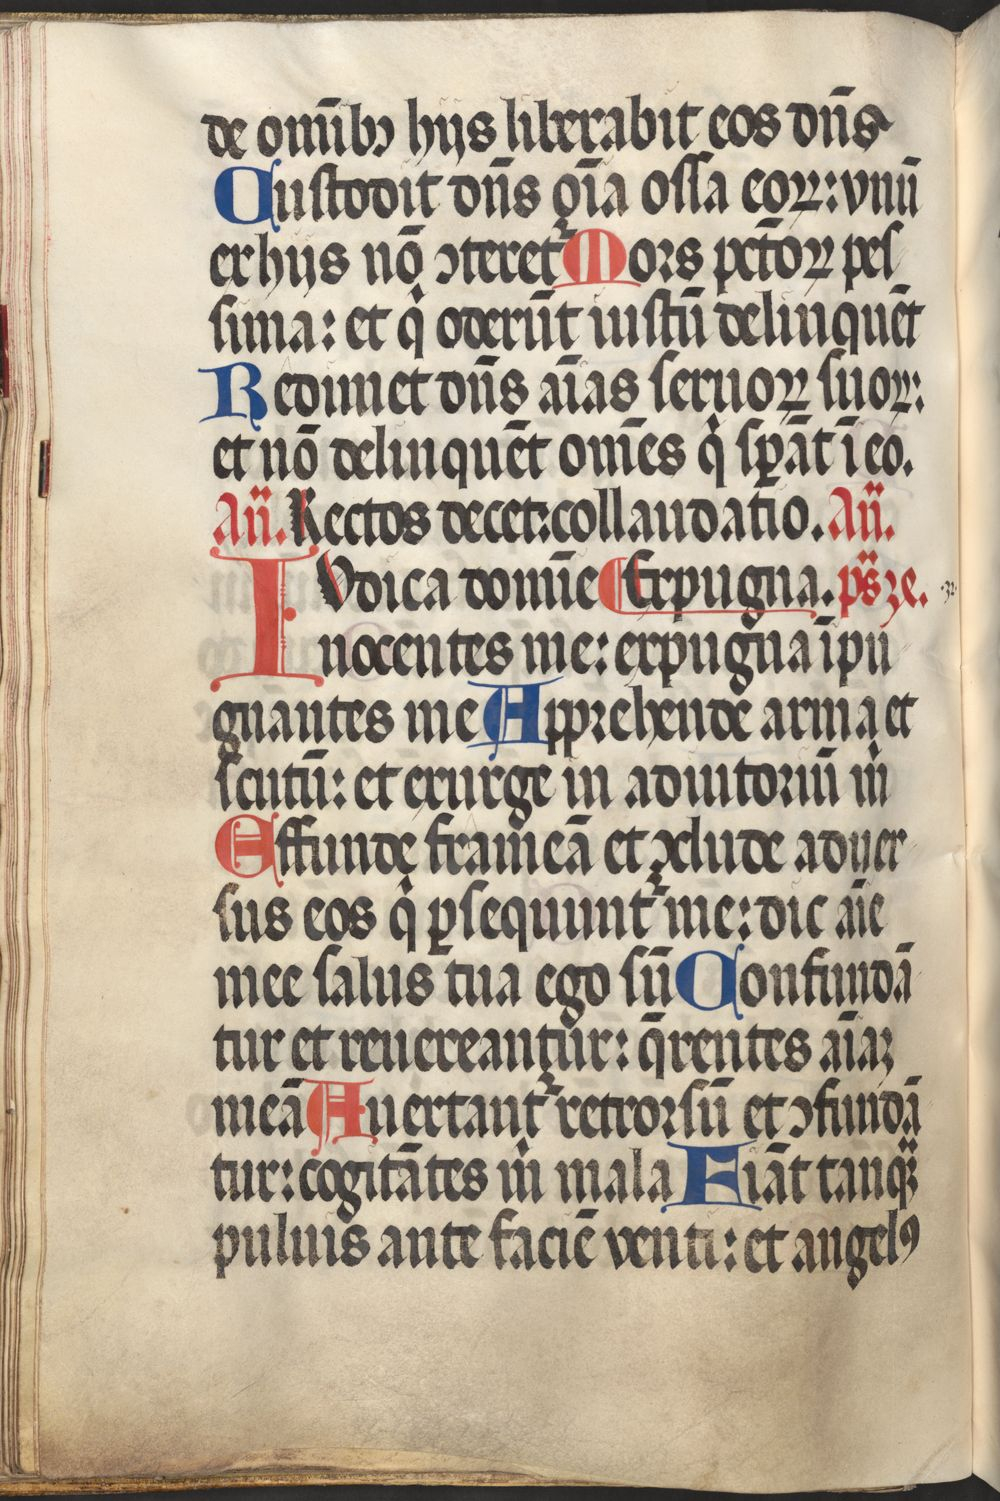 de om̄ibꝫ hijs liberabit eos dn̄s
Custodit dn̄s om̄ia ossa eoꝝ: vnū
ex hijs nō ↄteret᷑ Mors pctōꝝ pes
sima: et qͥ oderūt iustū delinquēt
Redimet dn̄s aīas seruoꝝ suoꝝ:
et nō delinquēt om̄es qͥ sꝑāt ī eo.
An̄. Rectos decet: collaudatio. An̄.
IVdica domīe Expugna. ps̄ ·32·
nocentes me: expugna īpu
gnantes me Apprehende arma et
scutū: et exurge in adiutoriū mͥ
Effunde frameā et ↄclude aduer
sus eos qͥ ꝑsequunt᷑ me: dic aīe
mee salus tua ego sū Confundā
tur et reuereantur: q̄rentes aīaꝫ
meā Auertant᷑ retrorsū et ↄfundā
tur: cogitātes mͥ mala Fiāt tanqꝫ
puluis ante faciē venti: et angelꝰ